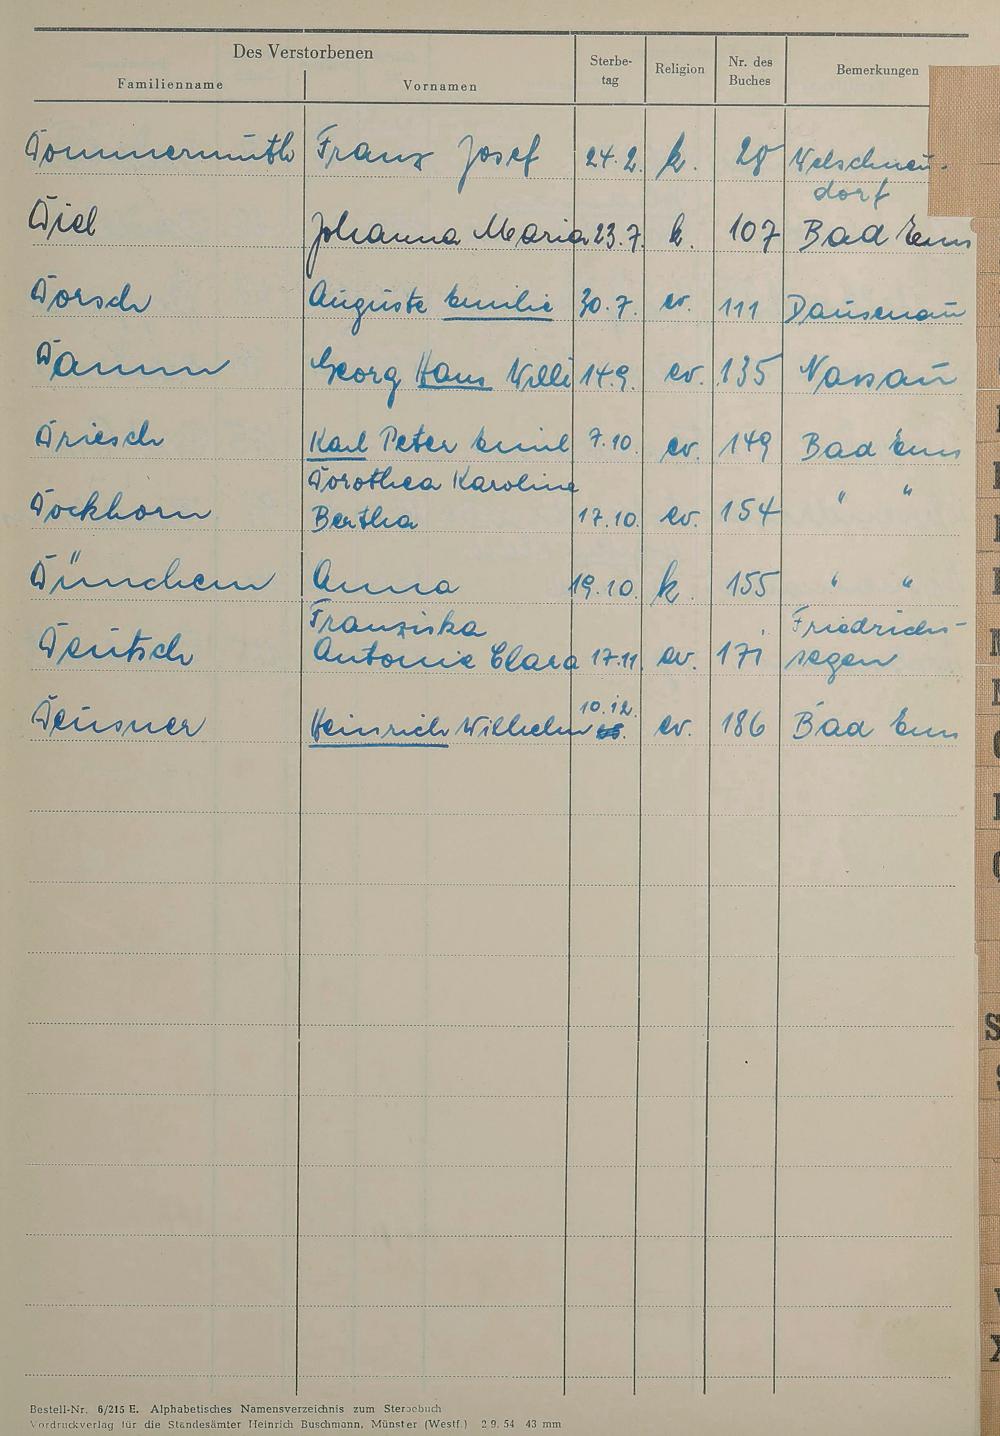 Des Verstorbenen
Familienname Vornamen Sterbe-tag Religion Nr. des Buches Bemerkungen
Dommermuth Franz Josef 24.2. k. 28 Welschneu-
dorf
Diel Johanna Maria 23.7. k. 107 Bad Ems
Dorsch Auguste Emilie 30.7. ev. 111 Dausenau
Damm Georg Hans Willi 14.9. ev. 135 Nassau
Driesch Karl Peter Emil 7.10. ev. 149 Bad Ems
Dorothea Karoline
Dockhorn Bertha 17.10. ev. 154 " "
Dünchem Anna 19.10. k. 155 " "
Franziska Friedrichs-
Deutsch Antonie Clara 17.11. ev. 171 segen
10.12.
Deusner Heinrich Wilhelm ev. 186 Bad Ems
Bestell-Nr. 6/215 E. Alphabetisches Namensverzeichnis zum Sterbebuch
Vordruckverlag für die Standesämter Heinrich Buschmann, Münster (Westf.) 2 9. 54 43 mm